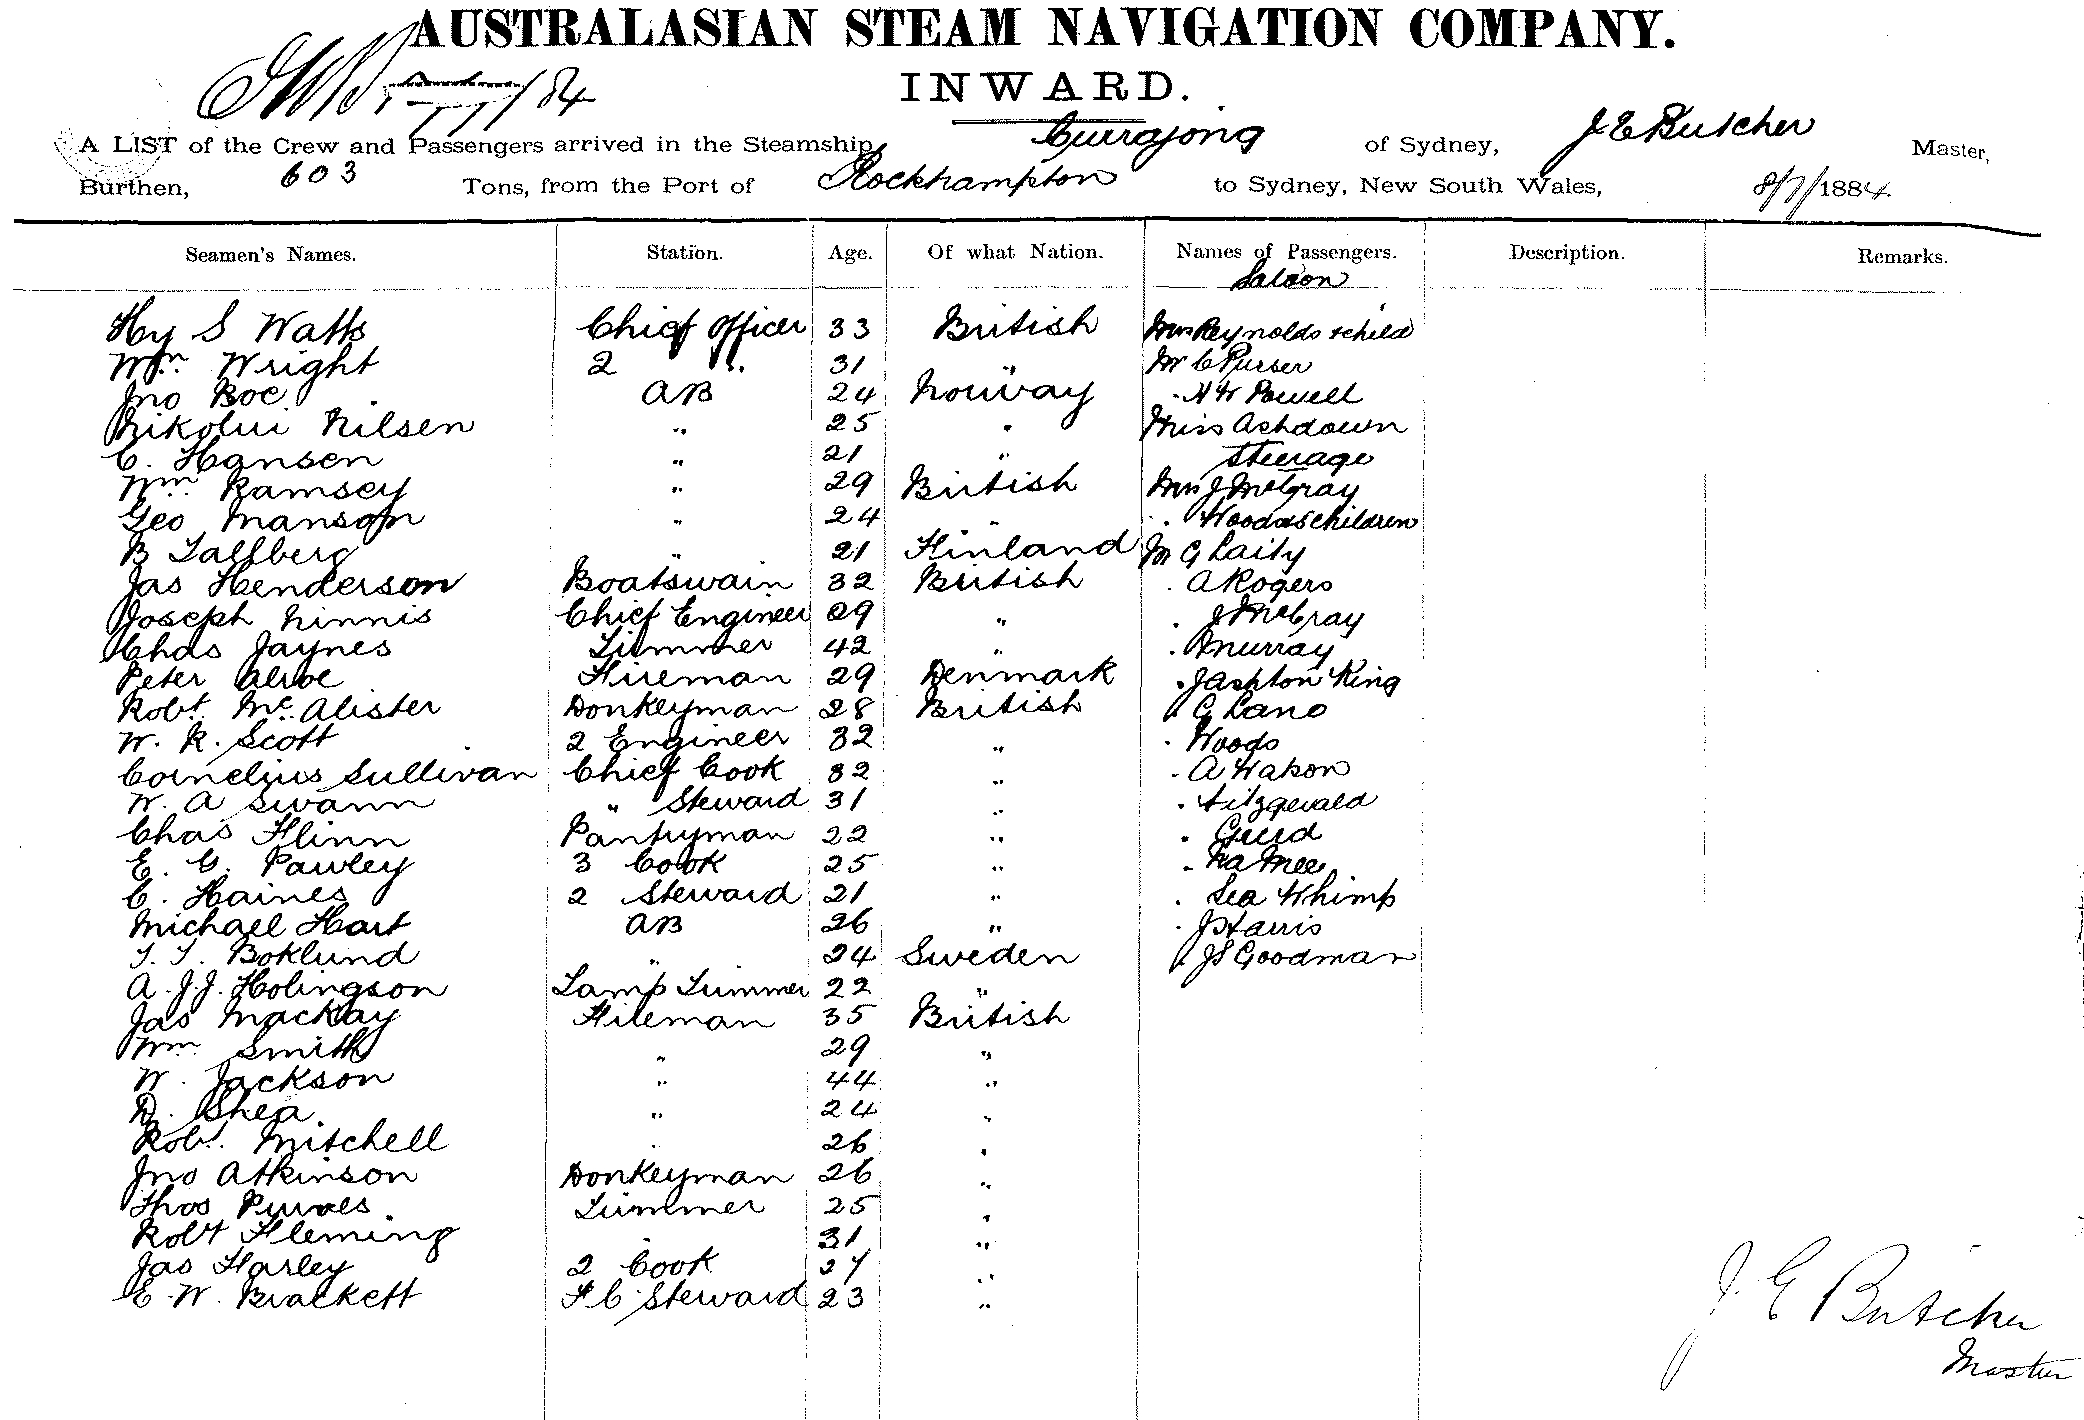 AUSTRALASIAN STEAM NAVIGATION COMPANY.
INWARD.
/84
A LIST of the Crew and Passengers arrived in the Steamship Currajong of Sydney, J E Butcher Master,
Burthen, 603 Tons, from the Port of Rockhampton to Sydney, New South Wales, 8/7/1884.
Seamen's Names. Station. Age. Of what Nation. Names of Passengers. Description. Remarks.
Saloon
Hy S Watts Chief Officer 33 British Mrs Reynolds & child
Wm Wright 2 " 31 " Mr C Purser
Jno Boe AB 24 Norway " H W Powell
Nikolui Nilsen " 25 " Miss Ashdown
C. Hansen " 21 " Steerage
Wm Ramsey " 29 British Mrs J McGray
Geo Manson " 24 " " Woods & 5 children
B Talfberg " 21 Finland Mr G Laity
Jas Henderson Boatswain 32 British " A Rogers
Joseph Ninnis Chief Engineer 29 " " J McGray
Chas Jaynes Trimmer 42 " " Murray
Peter Fireman 29 Denmark " J Ashton King
Robt McAlister Donkeyman 28 British " G Lano
W. R. Scott 2 Engineer 32 " " Woods
Cornelius Sullivan Chief Cook 32 " " A Watson
W. A Swann " Steward 31 " " Fitzgerald
Chas Flinn Pantryman 22 " "
E. G. Pawley 3 Cook 25 " " Na Mee
C. Haines 2 Steward 21 " " Sea Whimp
Michael Hart AB 26 " " J Harris
T. T. Boklund " 24 Sweden " J S Goodman
A. J. J. Holingson Lamp Trimmer 22 "
Jas Mackay Fireman 35 British
Wm Smith " 29 "
W. Jackson " 44 "
D. Shea " 24 "
Robt. Mitchell " 26 "
Jno Atkinson Donkeyman 26 "
Thos Purves Trimmer 25 "
Robt Fleming " 31 "
Jas Harley 2 Cook 27 "
E. W. Brackett F C Steward 23 "
J. E Butcher
Master